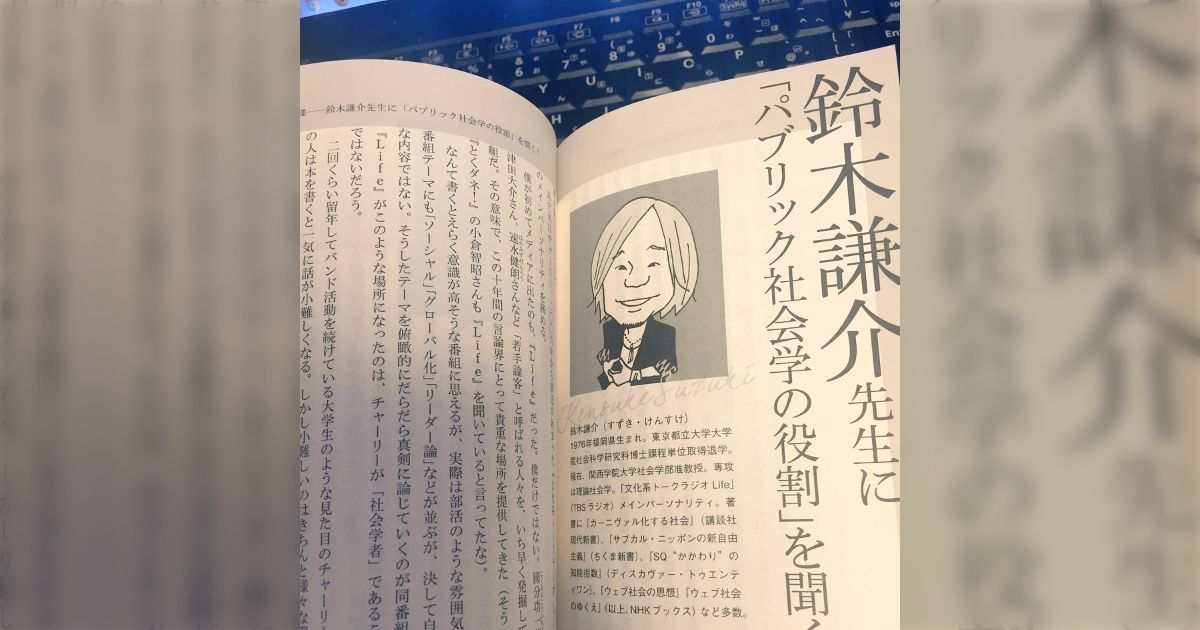 鈴木謙介先生に
「パブリック社会学の役割」を聞く
Kensuke Suzuki
鈴木謙介(すずき・けんすけ)
1976年福岡県生まれ。東京都立大学大学
院社会科学研究科博士課程単位取得退学。
現在、関西学院大学社会学部准教授。専攻
は理論社会学。『文化系トークラジオ Life』
(TBSラジオ)メインパーソナリティ。著
書に『カーニヴァル化する社会』(講談社
現代新書)、『サブカル・ニッポンの新自由
主義』(ちくま新書)、『SQ “かかわり”の
知能指数』(ディスカヴァー・トゥエンテ
ィワン)、『ウェブ社会の思想』『ウェブ社会
のゆくえ』(以上、NHKブックス)など多数。
鈴木謙介先生に「パブリック社会学の役割」を聞く
のメインパーソナリティを務める。
僕が初めてメディアに出たのも、『Life』だった。僕だけではない。國分功
津田大介さん、速水健朗さんなど「若手論客」と呼ばれる人々を、いち早く発掘して
組だ。その意味で、この十年間の言論界にとって貴重な場所を提供してきた(そう
『とくダネ!』の小倉智昭さんも『Life』を聞いていると言ってたな)。
なんて書くとえらく意識が高そうな番組に思えるが、実際は部活のような雰囲気
番組テーマにも「ソーシャル」「グローバル化」「リーダー論」などが並ぶが、決して自
な内容ではない。そうしたテーマを俯瞰的にだらだら真剣に論じていくのが同番組
『Life』がこのような場所になったのは、チャーリーが「社会学者」であるこ
ではないだろう。
二回くらい留年してバンド活動を続けている大学生のような見た目のチャーリー
の人は本を書くと一気に話が小難しくなる。しかし小難しいのはきちんと様々な